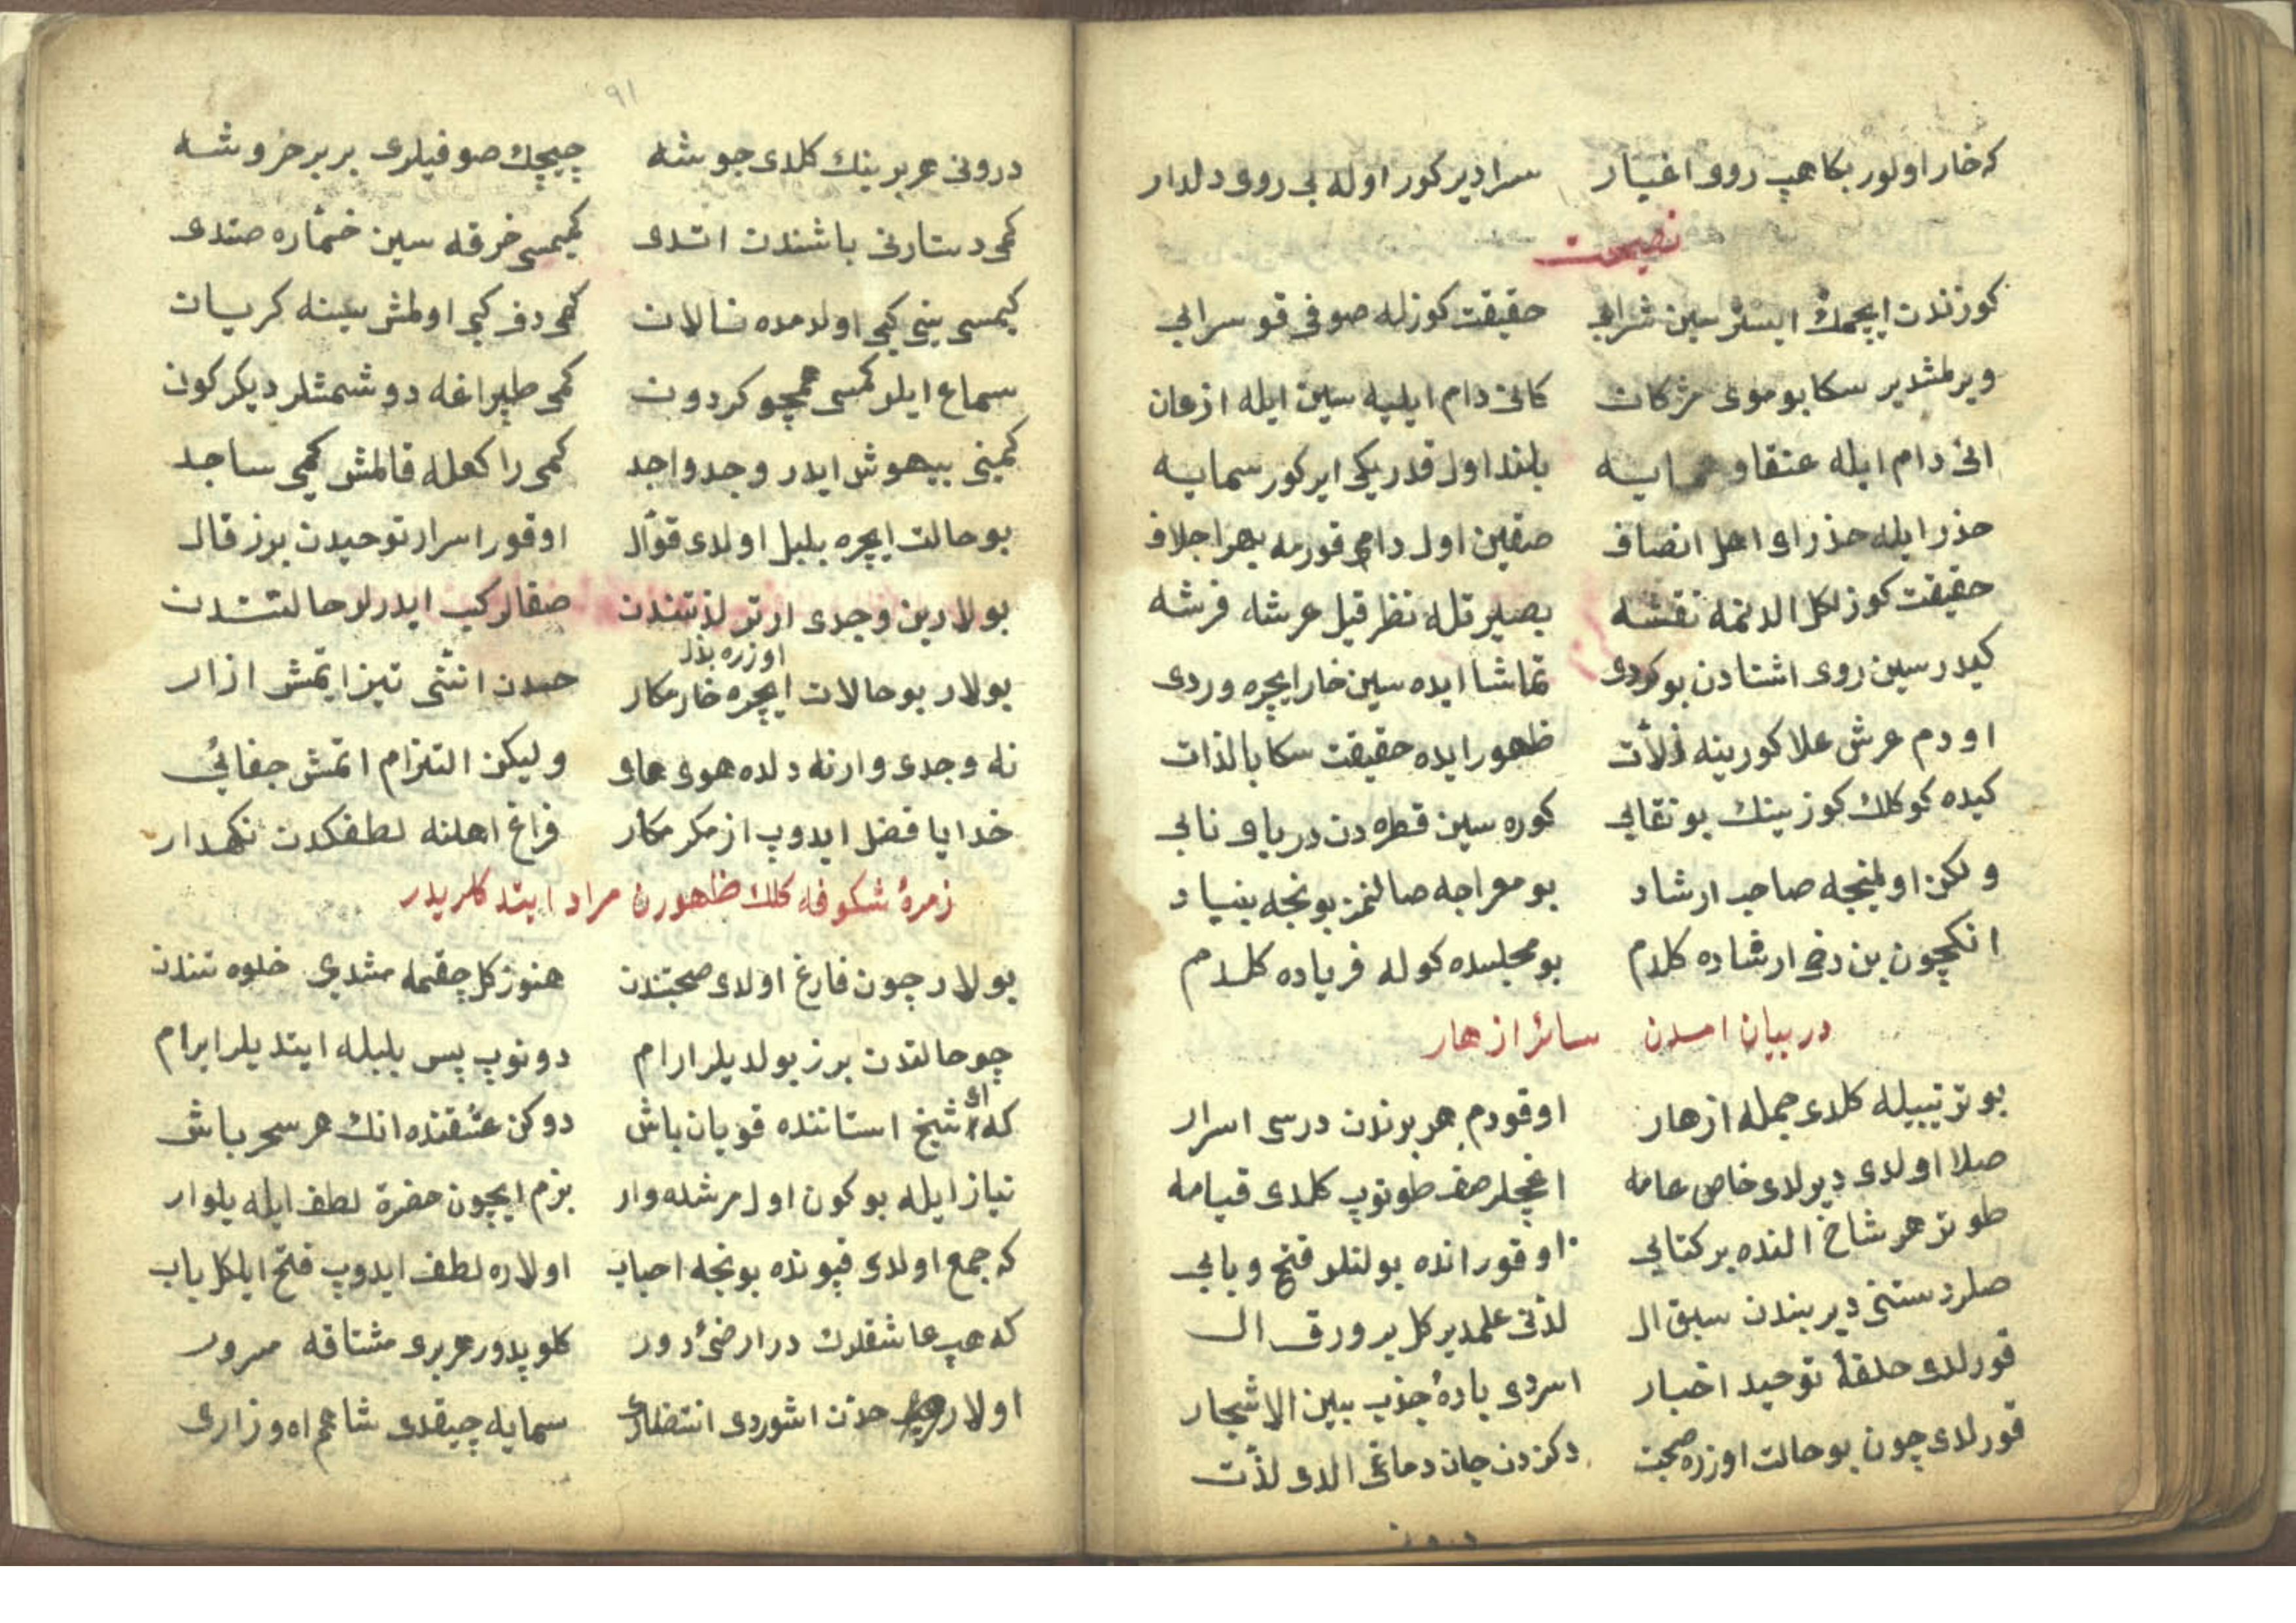 كه خار اولور بكا هپ روی اغيار سراديركور اوله بی روی دلدار
نصيحت
كوزندن ايچمك ايسترسين شرابی حقيقت كوزله صوفی قو سرابی
ويرلمشدير سكا بو موی مژكان كانی دام ايليه سين ايله ازعان
انی دام ايله عنقاو همايه بلند اول قدريكی ايركور سمايه
حذر ايله حذر ای اهل انصاف صقين اول دامی قورمه بهر اجلاف
حقيقت كوزلكل الدنمه نقشه بصيرتله نظر قيل عرشه فرشه
كيدرسين روی اشنادن بو كردی تماشا ايده سين خار ايچره وردی
او دم عرش علا كورينه ذلأت ظهور ايده حقيقت سكا بالذات
كيده كوكلك كوزينك بو نقابی كوره سين قطره دن دريای نابی
ولكن اولمينجه صاحب ارشاد بو معراجه صالنمز بونجه بنياد
انكچون بن دخی ارشاده كلدم بو مجلسده كوله فرياده كلدم
در بيان امدن سائر ازهار
بو ترتيبيله كلدی جمله ازهار اوقودم هر بوندن درسی اسرار
صلا اولدی ديرلدی خاص عامه اغچلر صف طوتوپ كلدی قيامه
طوتر هر شاخ النده بر كتابی اوقور انده بولنلر فتح و بابی
صلر دستنی دير بندن سبق ال لدنی علمدير كل بر ورق ال
قورلدی حلقهٔ توحيد اخبار اسردی بادهٔ جذب بين الاشجار
قورلدی چون بو حالت اوزره صحبت دكزدن جان دماغی الدی لذت
درونی
٩١
درونی هربرينك كلدی جوشه چيچك صوفيلری بر بر خروشه
كمی دستارنی باشندن اتدی كميسی خرقه سين خمّاره صتدی
كيمسی نی كبی اولدمده نالان كمی دف كبی اولمش يينه كريان
سماع ايلر كمسی همچو كردون كمی طپراغه دوشمشلر ديكركون
كمنی بيهوش ايدر وجد واجد كمی راكعله قالمش كمی ساجد
بو حالت ايچره بلبل اولدی قوّال اوقور اسرار توحيدن برز قال
بولارين وجدی ارتر لذتندن صفالر كسب ايدرلر حالتندن
اوزره بدل
بولار بو حالات ايچره خار مكار حسدن انشی تيز ايتمش ازار
نه وجدی وار نه دلده هوی های وليكن التزام اتمش جفائی
خدايا فضل ايدوپ از مكر مكار فراغ اهلنه لطفكدن نكهدار
زمرهٔ شكوفه كلك ظهورن مراد ايتدكلريدر
بولار چون فارغ اولدی صحبتندن هنوز كل چقيمه مشدی خلوه تندن
چو حالتدن برز بولديلر ارام دونوپ پس بلبله ايتديلر ابرام
كه ای شيخ استاننده قويان باش دوكن عشقنده انك هر سحر ياش
نياز ايله بو كون اول مرشده وار بزم ايچون حضرة لطف ايله يلوار
كه جمع اولدی قپونده بونجه احباب اولاره لطف ايدوپ فتح ايلكل باب
كه هپ عاشقلرك در ارضئ دور كلوپدور هربری مشتاقه مسرور
اولار حدن اشوردی انتظاری سمايه چيقدی شاهم اه و زاری